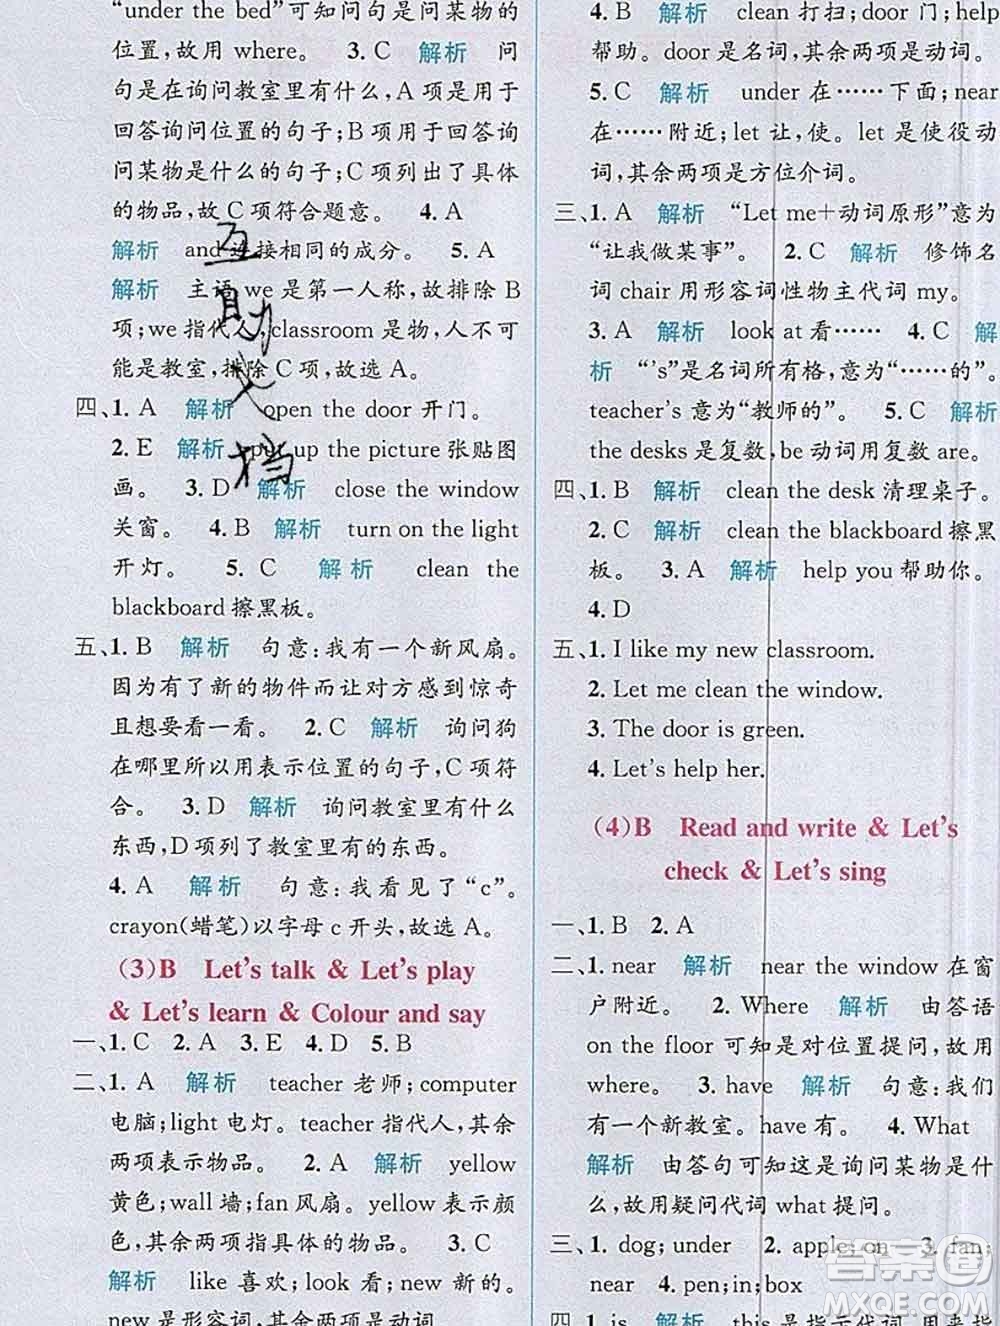 "under the bed"可知问句是问某物的
位置,故用 where。 3. C 解析 问
句是在询问教室里有什么,A项是用于
回答询问位置的句子;B项用于回答询
问某物是什么的句子;C项列出了具体
的物品,故C项符合题意。 4. A
解析 and 连接相同的成分。 5. A
解析 主语we是第一人称,故排除B
项;we指代人,classroom是物,人不可
能是教室,排除C项,故选A。
四、1. A 解析 open the door 开门。
2. E 解析 put up the picture张贴图
画。 3. D 解析 close the window
关窗。 4. B 解析 turn on the light
开灯。 5. C 解析 clean the
blackboard擦黑板。
五、1. B 解析 句意:我有一个新风扇。
因为有了新的物件而让对方感到惊奇
且想要看一看。 2. C 解析 询问狗
在哪里所以用表示位置的句子,C项符
合。 3. D 解析 询问教室里有什么
东西,D项列了教室里有的东西。
4. A 解析 句意:我看见了“c”。
crayon(蜡笔)以字母c开头,故选A。
(3)B Let's talk & Let's play
& Let's learn & Colour and say
一、1. C 2. A 3. E 4. D 5. B
二、1. A 解析 teacher 老师;computer
电脑;light电灯。teacher指代人,其余
两项表示物品。 2. A 解析 yellow
黄色;wall墙;fan风扇。yellow表示颜
颜色,其余两项指具体的物品。 3. C
解析 like喜欢;look看;new新的。
new是形容词,其余两项是动词。
互
助
文
档
4. B 解析 clean打扫;door门;help
帮助。door是名词,其余两项是动词。
5. C 解析 under在……下面;near
在……附近;let让,使。let是使役动
词,其余两项是方位介词。
三、1. A 解析 “Let me+动词原形”意为
“让我做某事”。 2. C 解析 修饰名
词chair用形容词性物主代词my。
3. A 解析 look at看…… 4. C
解析 “'s”是名词所有格,意为“……的”。
teacher's意为“教师的”。 5. C 解析
the desks是复数,be动词用复数are。
四、1. B 解析 clean the desk清理桌子。
2. C 解析 clean the blackboard擦黑
板。 3. A 解析 help you帮助你。
4. D
五、1. I like my new classroom.
2. Let me clean the window.
3. The door is green.
4. Let's help her.
(4)B Read and write & Let's
check & Let's sing
一、1. B 2. A
二、1. near 解析 near the window在窗
户附近。 2. Where 解析 由答语
on the floor可知是对位置提问,故用
where。 3. have 解析 句意:我们
有一个新教室。have有。 4. What
解析 由答句可知这是询问某物是什
么,故用疑问代词what提问。
三、1. dog;under 2. apple;on 3. fan;
near 4. pen;in;box
四、1. is 解析 this是指示代词,用来指
答案圈
MXQE.COM